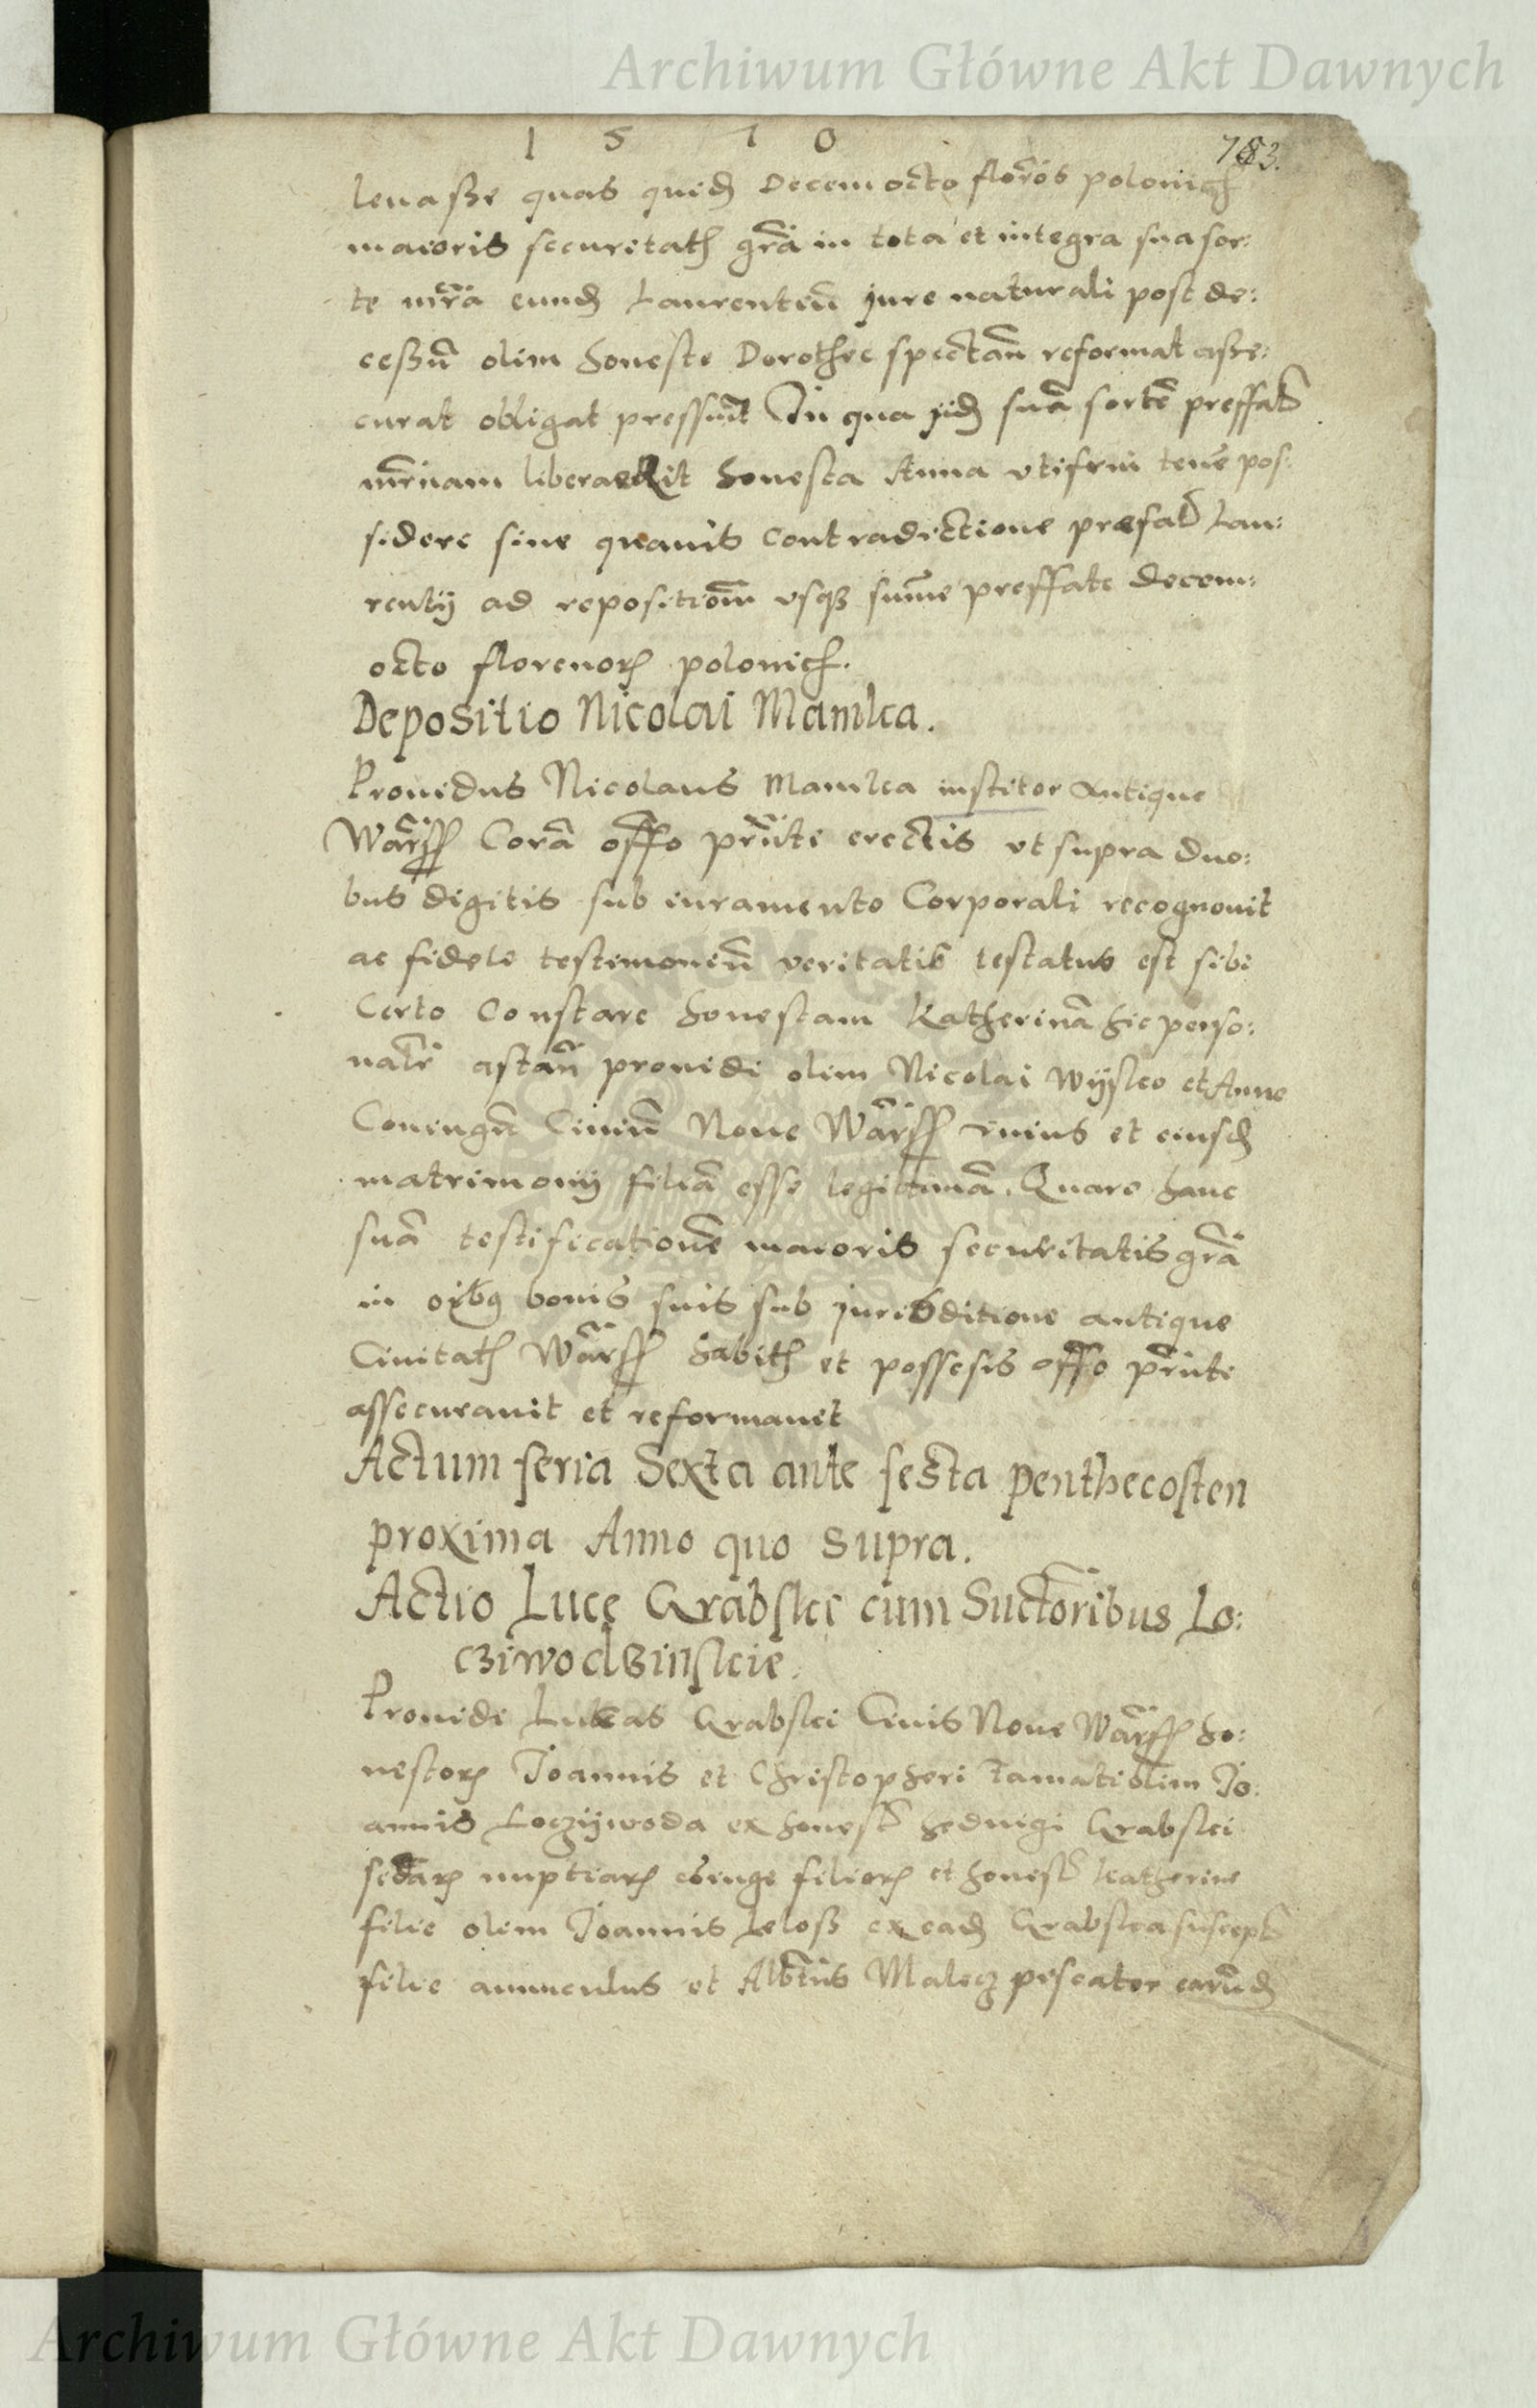 Archiwum Główne Akt Dawnych
1 5 7 0
levaße quas quidẽ Decemocto florõs polonicꝭ
maioris securitatꝭ grã in tota et integra sua sor:
te mrã eundẽ Laurentiũ jure naturali post de:
ceßũ olim honeste Dorothee spectañ reformat aße:
curat obligat In qua suã sortẽ preffatꝭ
libera honesta Anna utifrui tenẽ pos:
sidere sine quavis contradictione præfatꝭ Lau:
rentij ad repositiõm usqꝫ sum̃e preffate decem:
octo florenorꝭ polonicꝭ.
Depositio Nicolai Mamka.
Providus Nicolaus Mamka institor Antique
Warss̃ Corã offo prñte erectis ut supra duo:
bus digitis sub iuramento Corporali recognovit
ac fidele testimoniũ veritatis testatus est sibi
Certo Constare honestam Katherinã hic perso:
nalr̃ astañ providi olim Nicolai Wysko et Anne
Coniugũ Civiũ Nove Warss̃ unius et eiusdẽ
matrimonij filiã esse legittimã. Quare hanc
suã testificationẽ maioris securitatis grã
in oĩbꝰ bonis suis sub jurisditione antique
Civitatꝭ Warss̃ habitꝭ et possesis offo prñte
assecuravit et reformavit
Actum feria Sexta ante festa penthecosten
proxima Anno quo supra.
Actio Luce Grabski cum Suctoribus Lo:
cziwodzinskie.
Providi Lukas Grabski Civis Nove Warss̃ ho:
nestorꝭ Joannis et Christopheri olim Jo:
annis Loczywoda ex honestꝭ Hedvigi Grabski
nuptiarꝭ filiorꝭ et honestꝭ Katherine
filie olim Joannis Leloß ex eadẽ Grabska susceptꝭ
filie avunculus et Albtus̃ Malecz piscator earũdẽ
Archiwum Główne Akt Dawnych